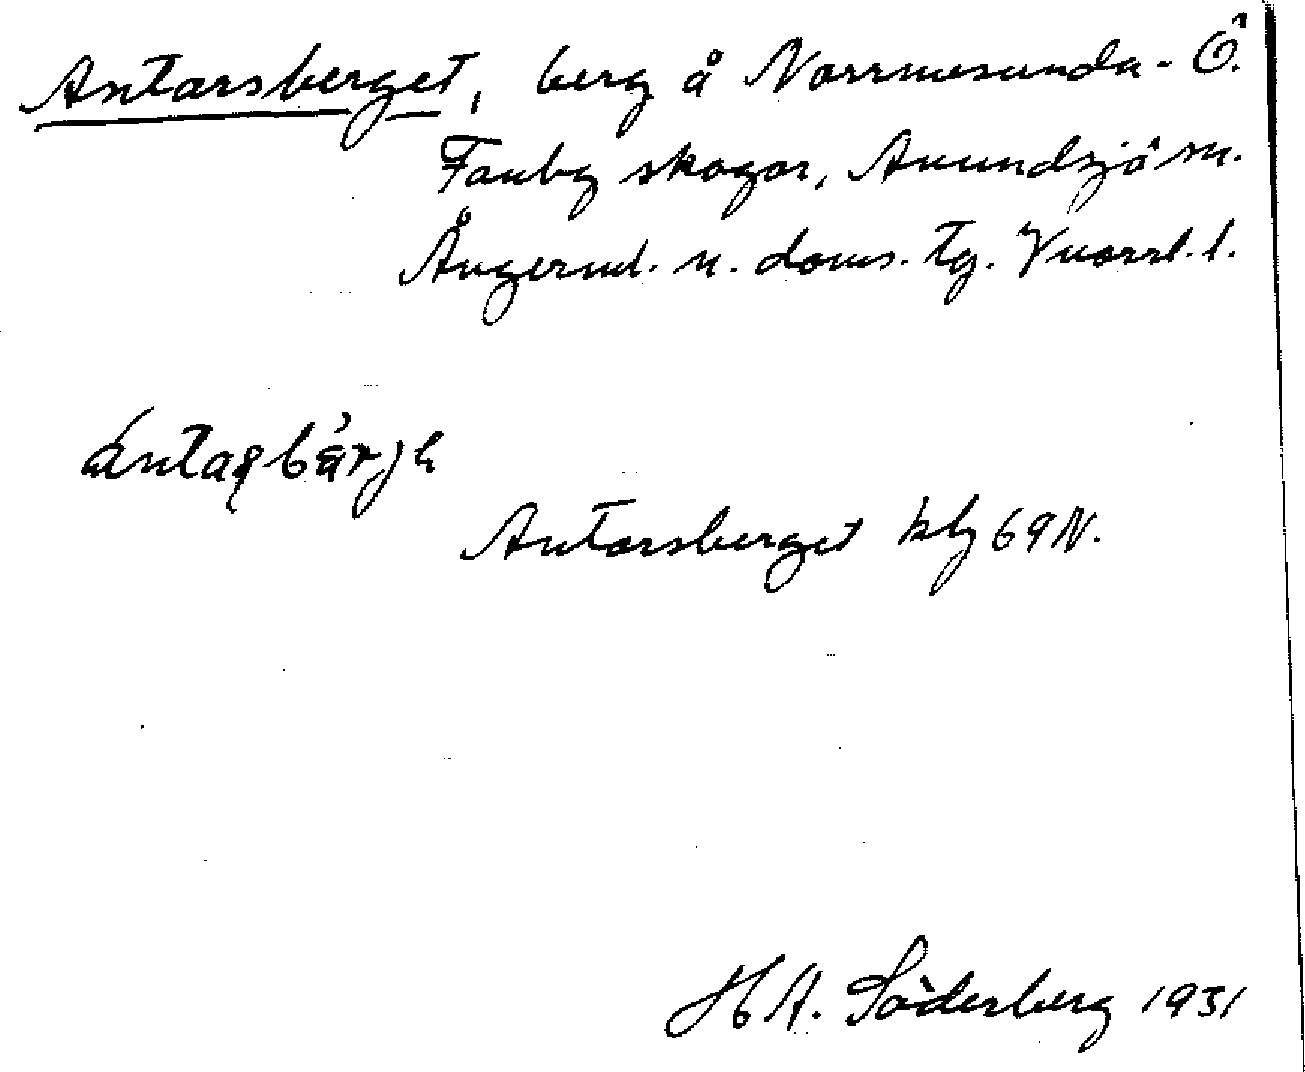 Antarsberget, berg å Norrmesunda - Ö.
Fanby skogar, Anundsjö sn.
Ångerml. n. doms. tg. Vnorrl. l.
Antarsberget blg 69 N.
H A. Söderberg 1931